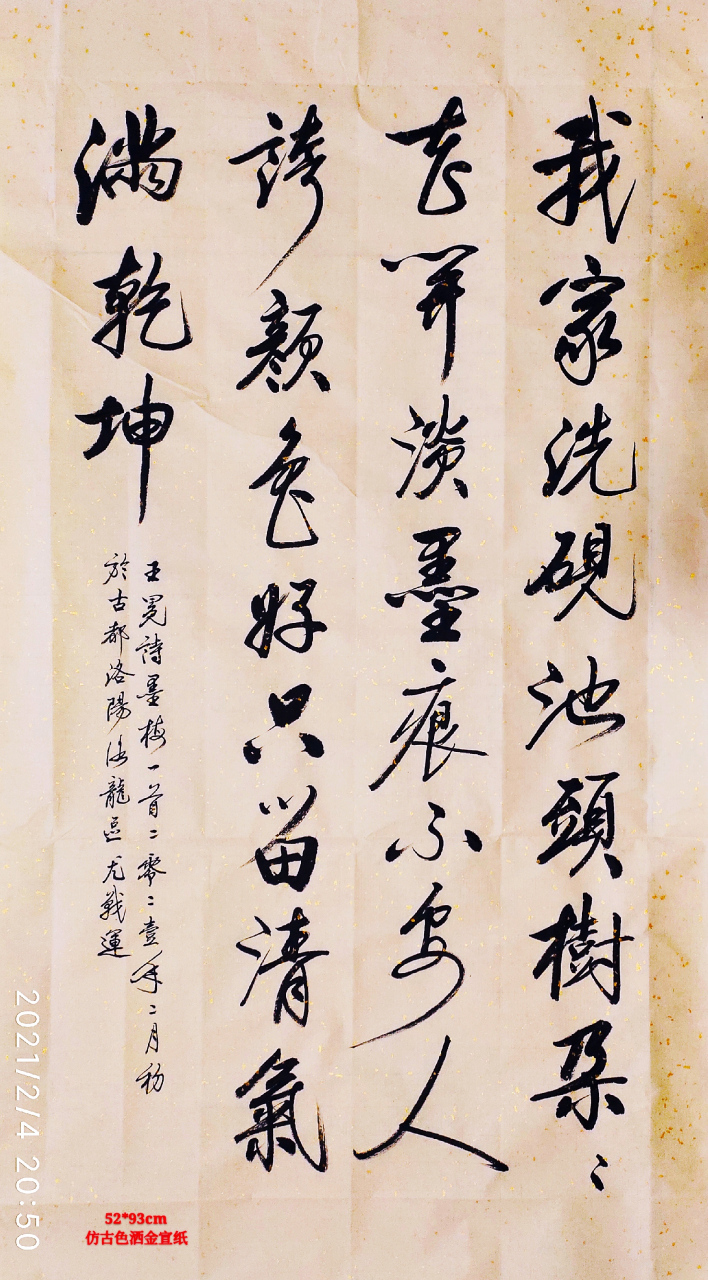 我家洗硯池頭樹朵〻
花開淡墨痕不要人
誇顏色好只留清氣
滿乾坤
王冕詩墨梅一首二零二壹年二月初
於古都洛陽洛龍區尤戰運
2021/2/4 20:50
52*93cm
仿古色洒金宣纸